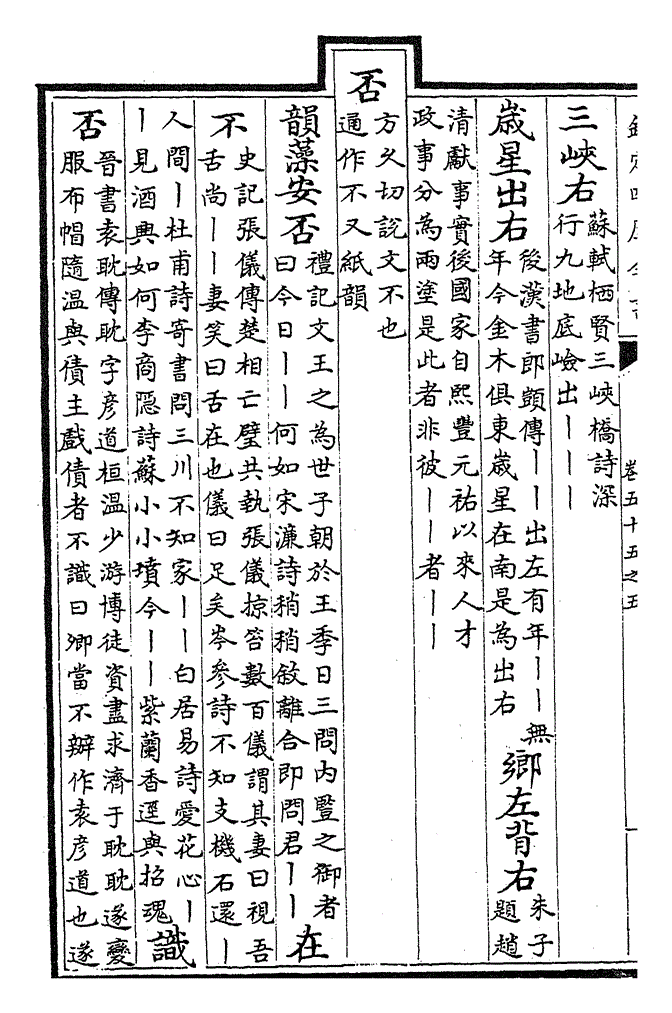 卷五十五之五
三峽右
蘇軾栖賢三峽橋詩深
行九地底嶮出丨丨丨
歲星出右
後漢書郎顗傳丨丨出左有年丨丨無
年今金木俱東歲星在南是為出右
鄉左背右
朱子
題趙
清獻事實後國家自熙豐元祐以來人才
政事分為兩塗是此者非彼丨丨者丨丨
否
方久切說文不也
通作不又紙韻
韻藻安否
禮記文王之為世子朝於王季日三問內豎之御者
曰今日丨丨何如宋濂詩稍稍敘離合即問君丨丨
在
不
史記張儀傳楚相亡璧共執張儀掠笞數百儀謂其妻曰視吾
舌尚丨丨妻笑曰舌在也儀曰足矣岑參詩不知支機石還丨
人間丨杜甫詩寄書問三川不知家丨丨白居易詩愛花心丨
丨見酒興如何李商隱詩蘇小小墳今丨丨紫蘭香逕與招魂
識
否
晉書袁耽傳耽字彥道桓溫少游博徒資盡求濟于耽耽遂變
服布帽隨溫與債主戲債者不識曰卿當不辦作袁彥道也遂